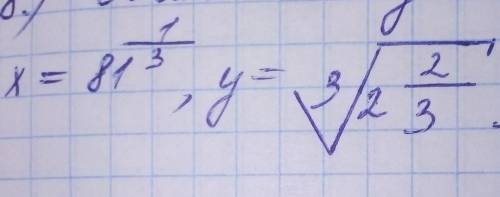 x = 81^{\frac{1}{3}}, y = \sqrt[3]{2\frac{2}{3}}.